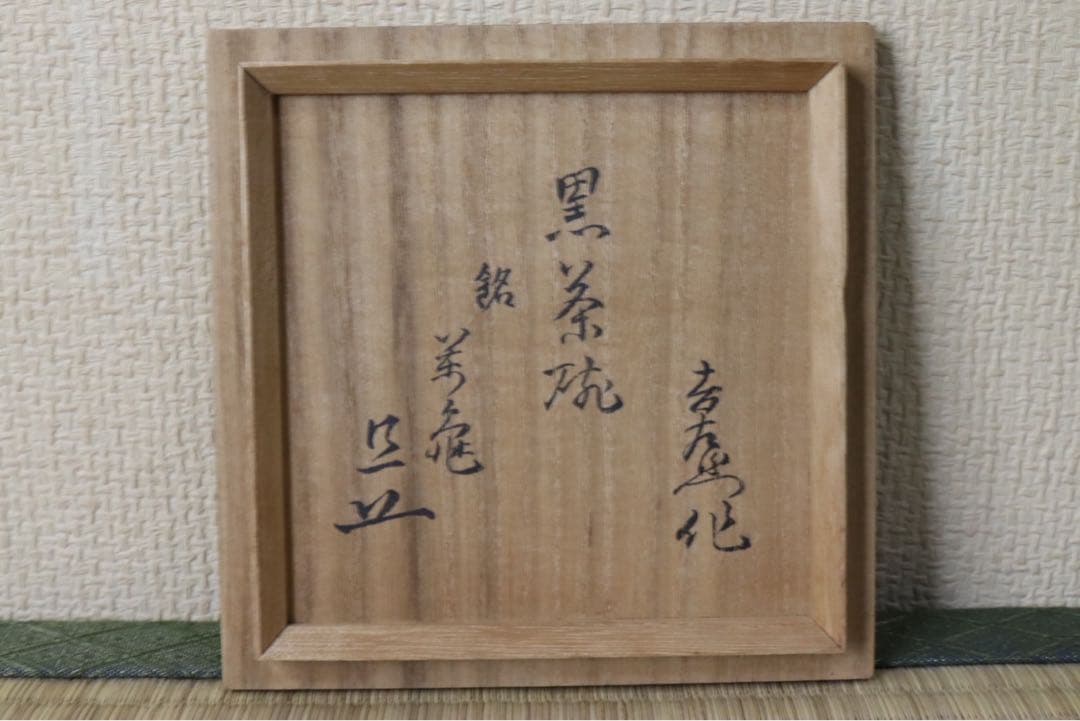 吉左衛門作
黒茶碗
銘
萬亀